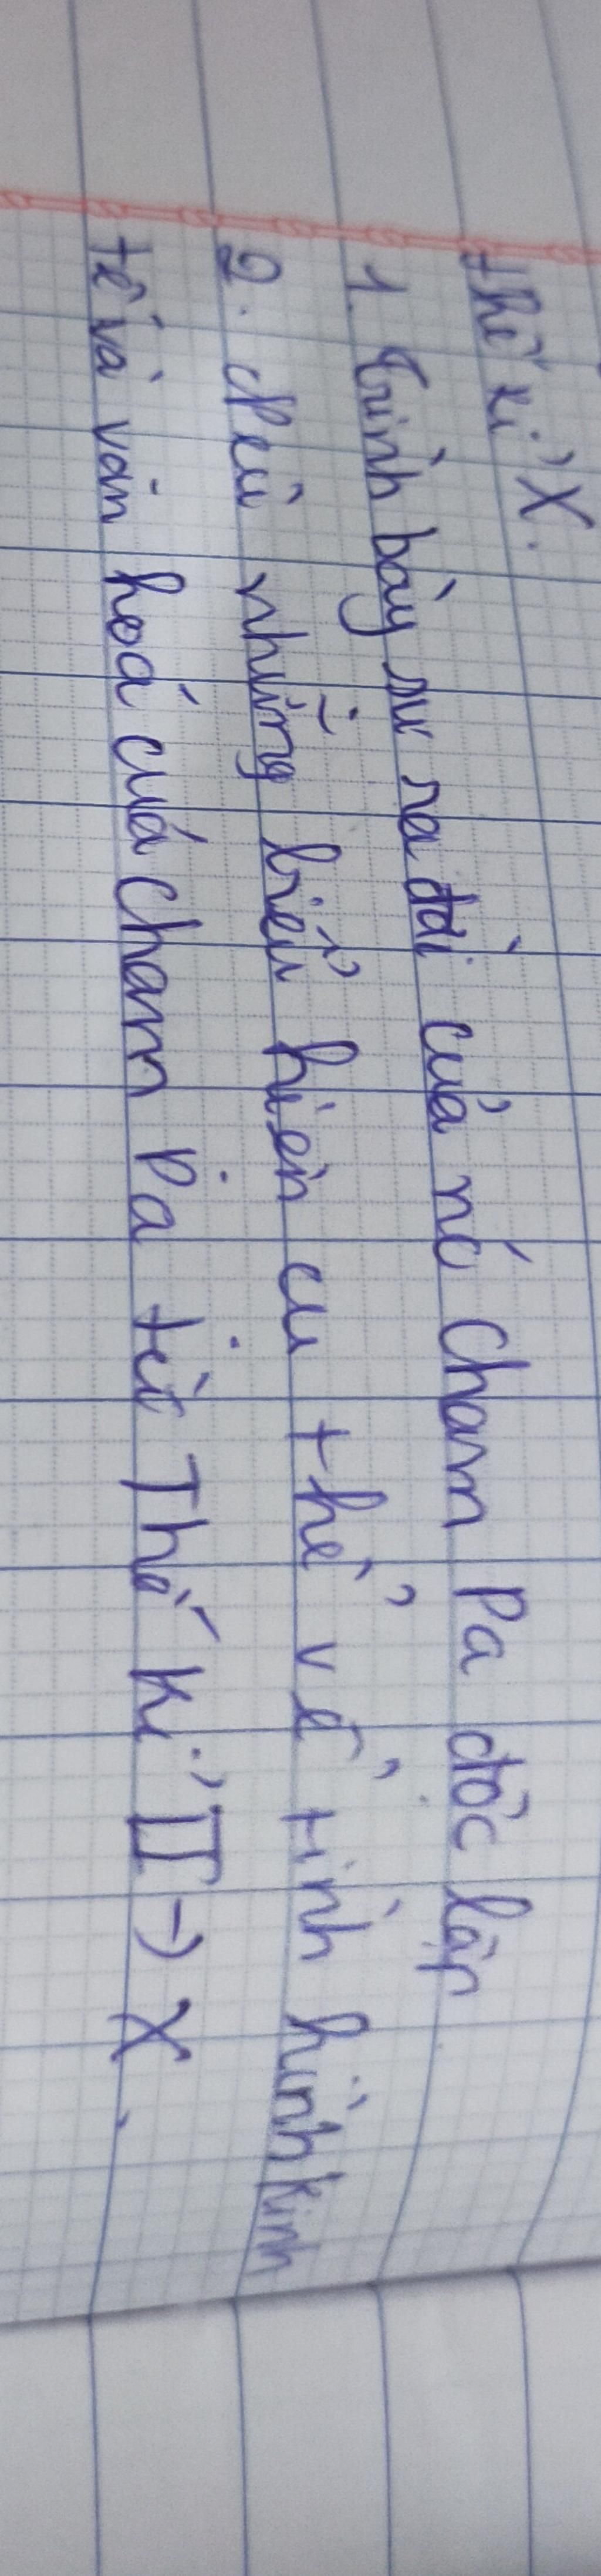 thế kỉ X.
1. Trình bày sự ra đời của nc Cham Pa độc lập
2. Nêu những biểu hiện cụ thể về tình hình kinh
tế và văn hoá của Cham Pa từ Thế kỉ II → X.